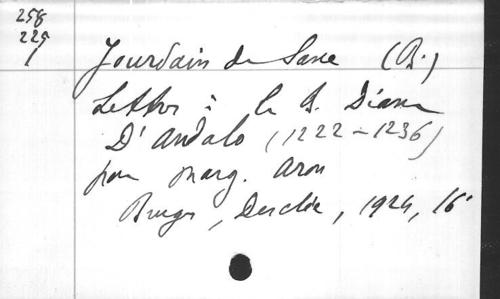 258
229
1
Jourdain de Saxe (B.)
Lettres à la B. Diane
D'Andalo (1222-1236)
par Marg. Aron
Bruges, Desclée, 1924, 16°